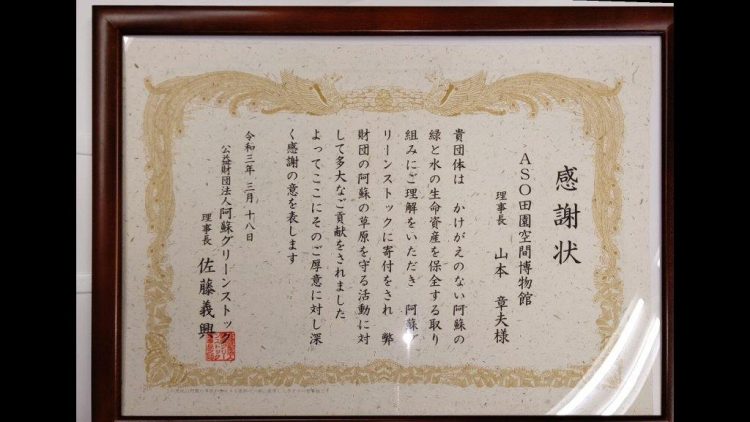 感謝状
ASO田園空間博物館
理事長　山本　章夫様
貴団体は　かけがえのない阿蘇の
緑と水の生命資産を保全する取り
組みにご理解をいただき　阿蘇グ
リーンストックに寄付をされ　弊
財団の阿蘇の草原を守る活動に対
して多大なご貢献をされました
よってここにそのご厚意に対し深
く感謝の意を表します
令和三年三月十八日
公益財団法人阿蘇グリーンストック
理事長　佐藤義興